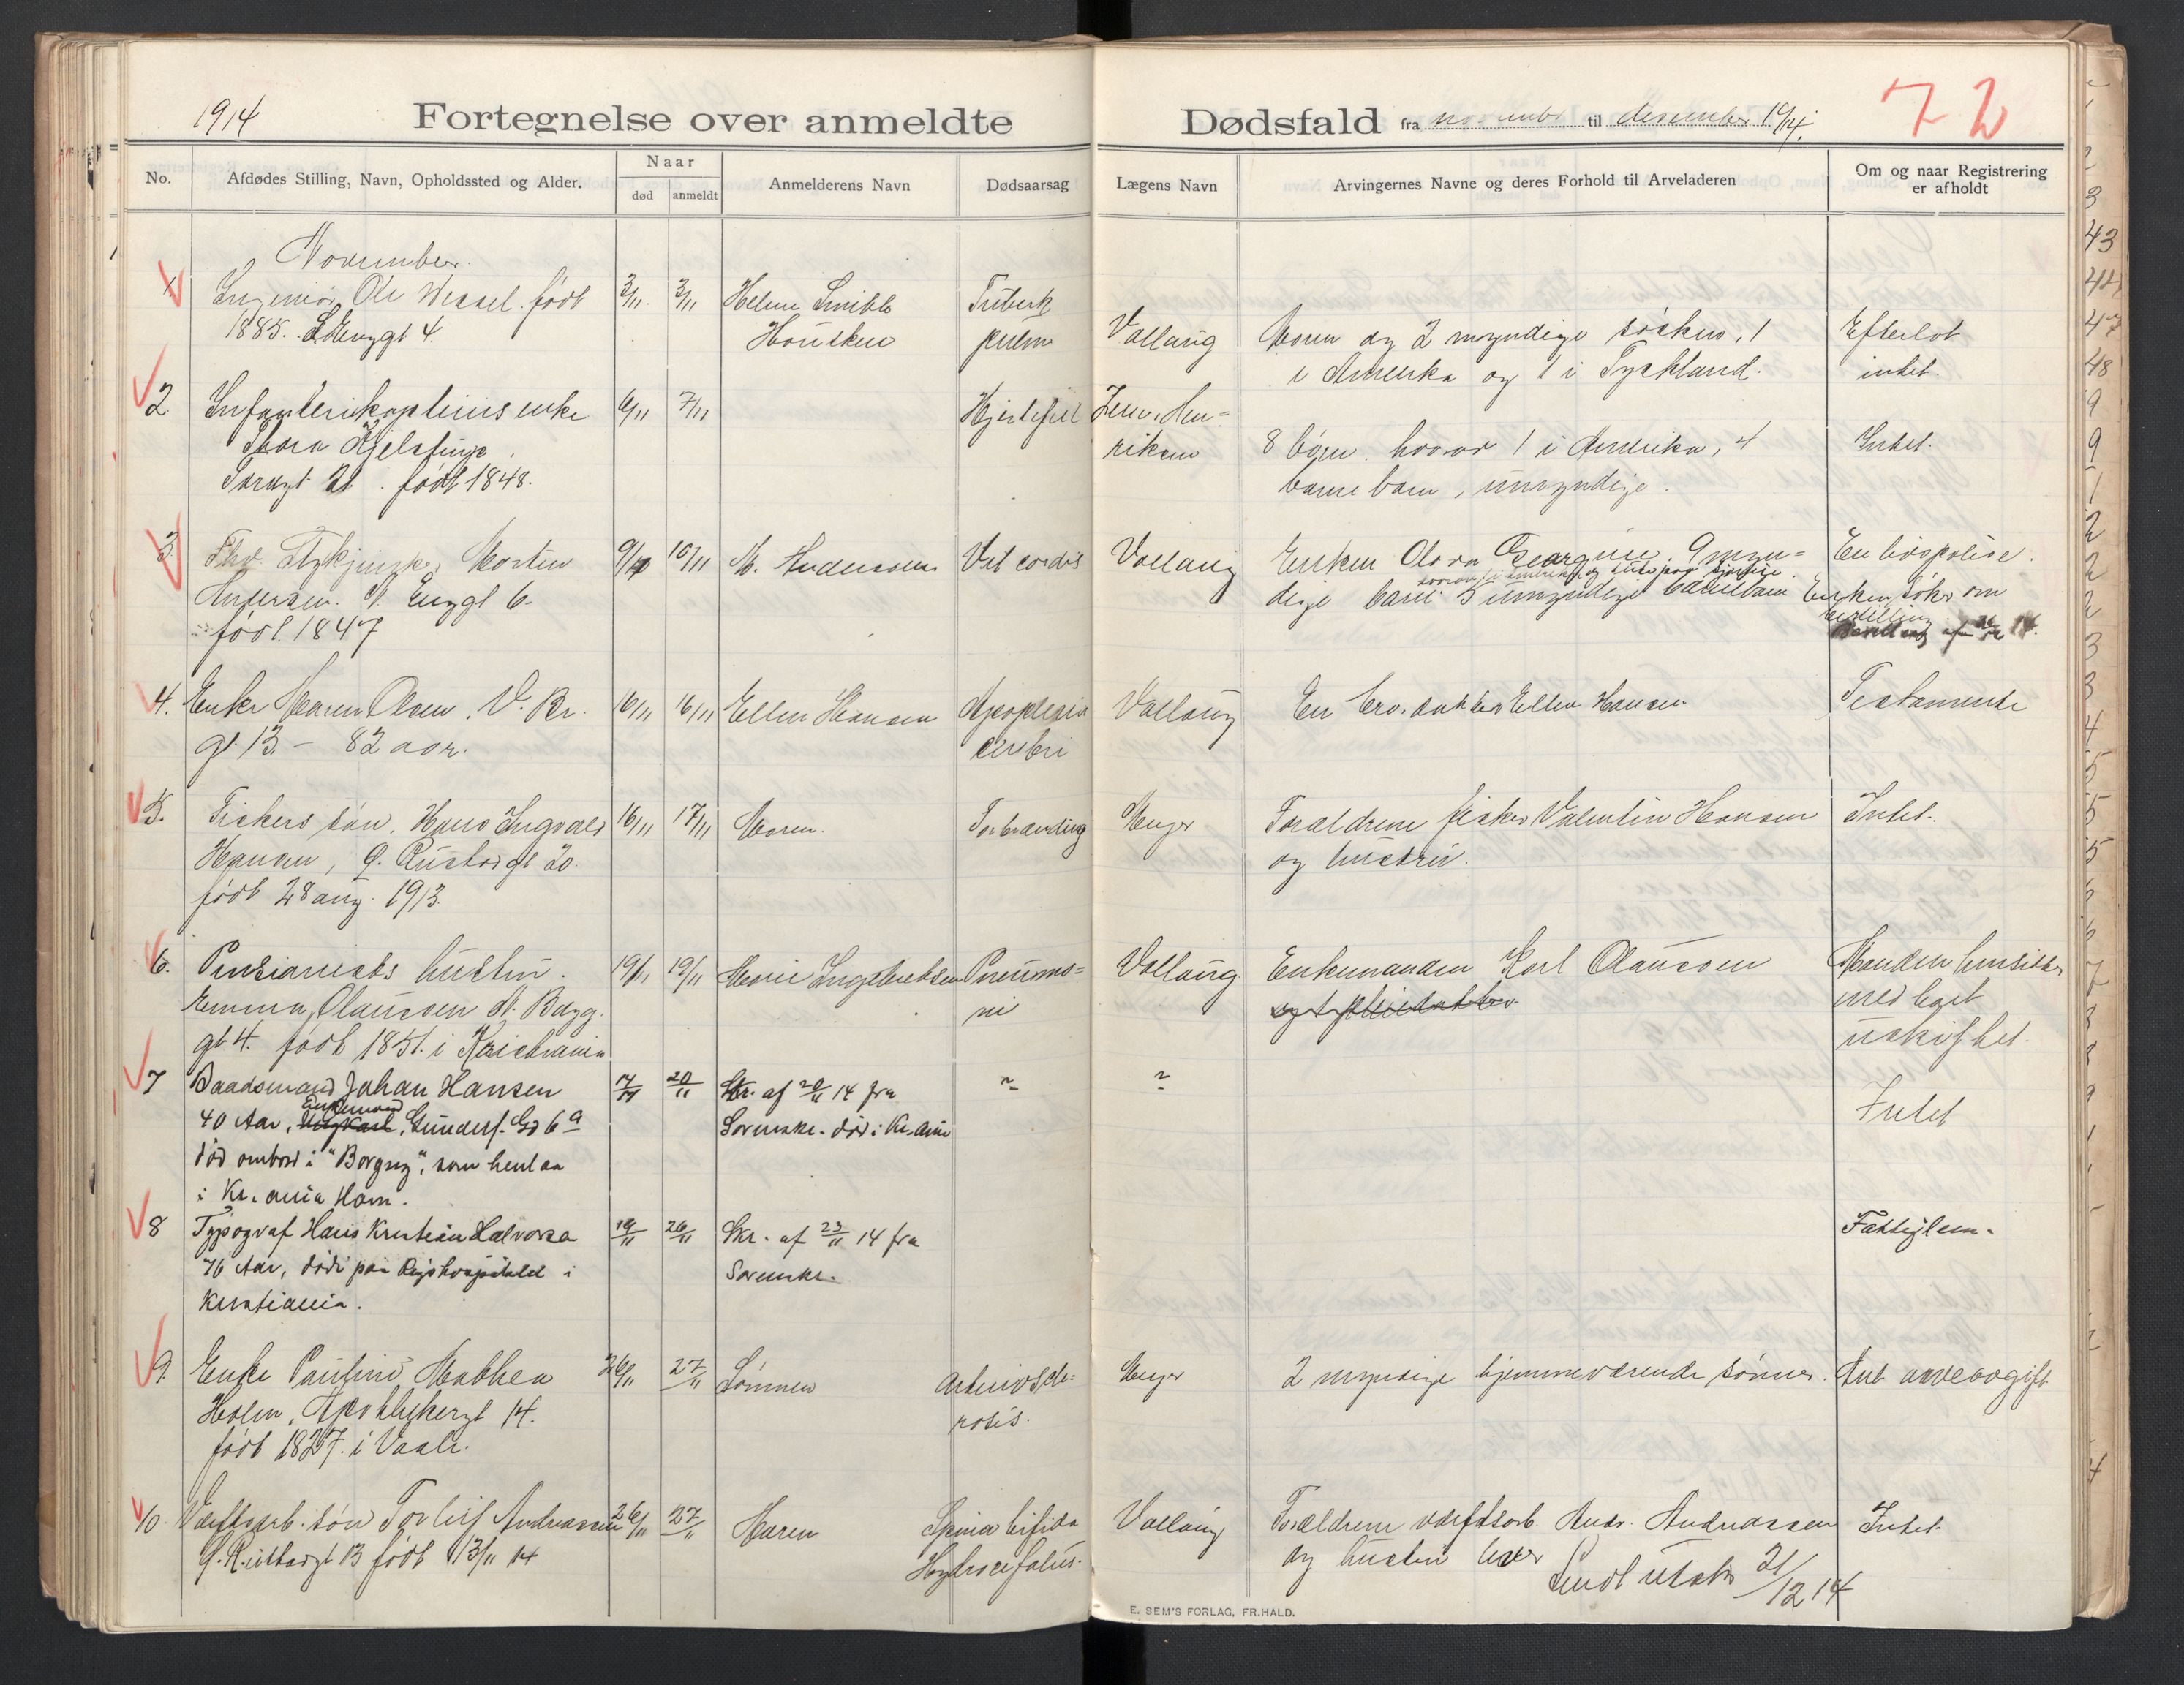 1914
Fortegnelse over anmeldte
Dødsfald fra november til desember 1914.
72
No.
Afdødes Stilling, Navn, Opholdssted og Alder.
Naar
død
anmeldt
Anmelderens Navn
Dødsaarsag
Lægens Navn
Arvingernes Navne og deres Forhold til Arveladeren
Om og naar Registrering
er afholdt
November.
1
Ingeniør Ole Wessel. født
1885. gt 4.
3/11.
3/11
Helene Smith
Housken
Tuberk
pulm
Vollaug
Moren og 2 myndige søsken, 1
i Amerika og 1 i Tyskland.
Efterlot
intet.
2.
Infanterikapteins enke
Thora
Torvgt 21. født 1848.
6/11
7/11
Hjertefeil
Jens. Hen=
riksen
8 børn. hvorav 1 i Amerika, 4
barnebarn, umyndige.
Intet.
3.
Fhv. Morten
Andersen. N. Enggt 6.
født 1847
9/11
10/11
M. Anderssen
Vit cordis
Vollaug
Enken Olava Georgine. 9 myn=
dige barn 5 umyndige barnebarn
En livspolise.
Enken søker om
bevilling
4.
Enke Maren Olsen. V. Br.
gt. 13 – 82 aar.
16/11
16/11
Ellen Hansen
Apoplexia
cerebri
Vollaug
En br. datter Ellen Hansen.
Testamente
5.
Fiskers søn. Hans Ingvald
Hansen, G. Rustadgt 20.
født 28 aug. 1913.
16/11
17/11
Moren.
Forbrænding
Meyer
Forældrene fisker Valentin Hansen
og hustru.
Intet.
6.
Pensionists hustru.
Emma Olaussen N. Bagg.
gt 4. født 1851. i Kristiania
19/11
19/11
Marie Ingebretsen
Pneumo=
ni
Vollaug
Enkemanden Karl Olaussen
og 1 pleiedatter
Manden hensitter
med boet
uskiftet.
7
Baadsmand Johan Hansen
Enkemand
40 Aar, Ungkarl, Gunders. Gd 6a
død ombord i "Borgny", som henlaa
i Kr.ania Havn.
14/11
20/11
Skr. af 20/11 14 fra
Sorenskr. død i Kr.ania
~
~
Intet
8
Typograf Hans Kristian Halvorsen
76 Aar, døde paa Rigshospitalet i
Kristiania.
19/11
26/11
Skr. af 23/11 14 fra
Sorenskr.
Fattiglem.
9.
Enke Pauline Mathea
Holm, Apothekergt 14.
født 1827. i Vaale.
26/11
27/11
Sønnen
Arterioscle=
rosis.
Meyer
2 myndige hjemmeværende sønner.
Ant arveavgift
10
Værftsarb. søn Torleif Andreassen
G. Rustadgt 13 født 13/11 14
26/11
27/11
Moren
Spina bifida
Hydrocefalus.
Vollaug
Forældrene værftsarb. Andr. Andreassen
og hustru lever
Intet.
Sendt 21/12 14
E. SEM'S FORLAG, FR.HALD.